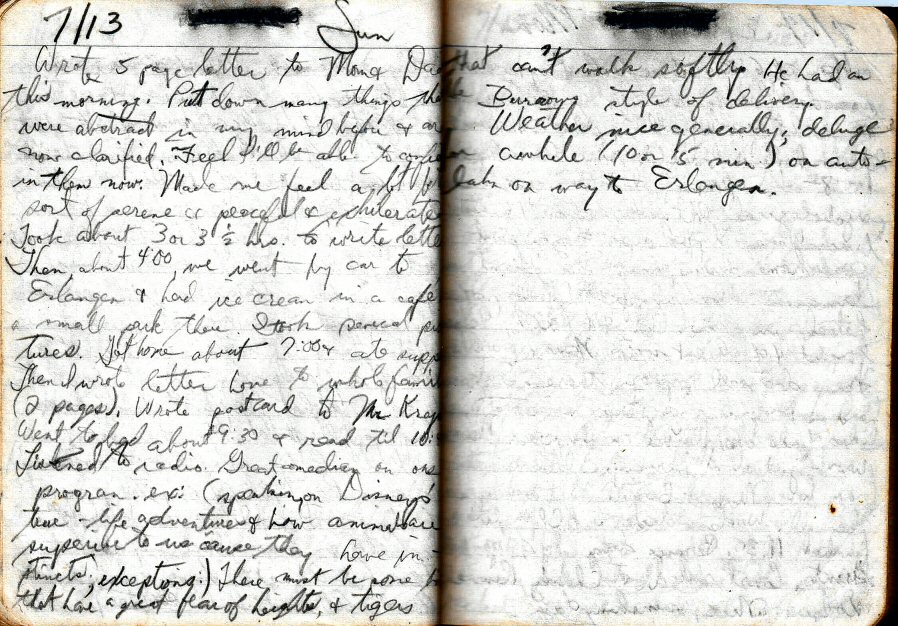 7/13 Sun
Wrote 5 page letter to Mom & Dad
this morning. Put down many things that
were abstract in my mind before & are
now clarified. Feel I'll be able to
in them now. Made me feel a lot
sort of serene & peaceful & exhilerated
Took about 3 or 3 ½ hrs. to write letter
Then, about 4:00, we went by car to
Erlangen & had ice cream in a cafe
a small park there. I took several pic
tures. Got home about 7:00 & ate supper
Then I wrote letter home to whole family
(2 pages). Wrote postcard to Mr
Went to bed about 9:30 & read til 10:
Listened to radio. Great comedian on one
program. ex: (speaking on Disney's
true-life adventures & how animals are
superior to us cause they have in-
stincts, exceptions:) There must be some
that have a great fear of heights, & tigers
that can't walk softly. He had an
style of delivery.
Weather nice generally; deluge
awhile (10 or 15 min.) on auto-
bahn on way to Erlangen.